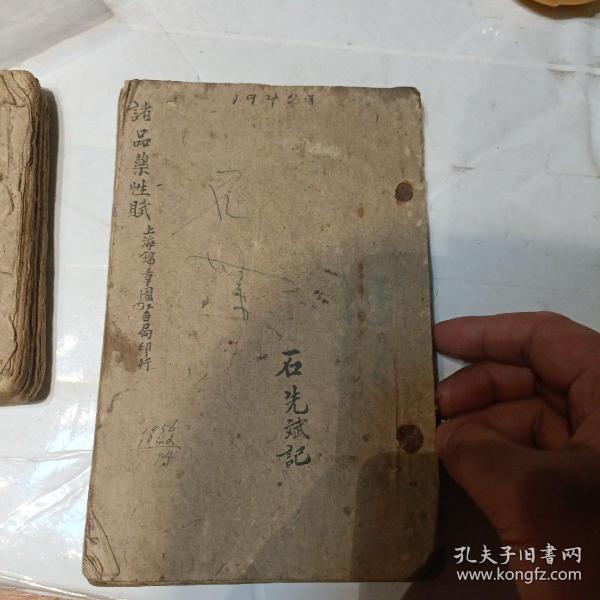 1942
諸品藥性賦
上海錦章圖書局印行
石先斌記
1956
1942
孔夫子旧书网
www.kongfz.com